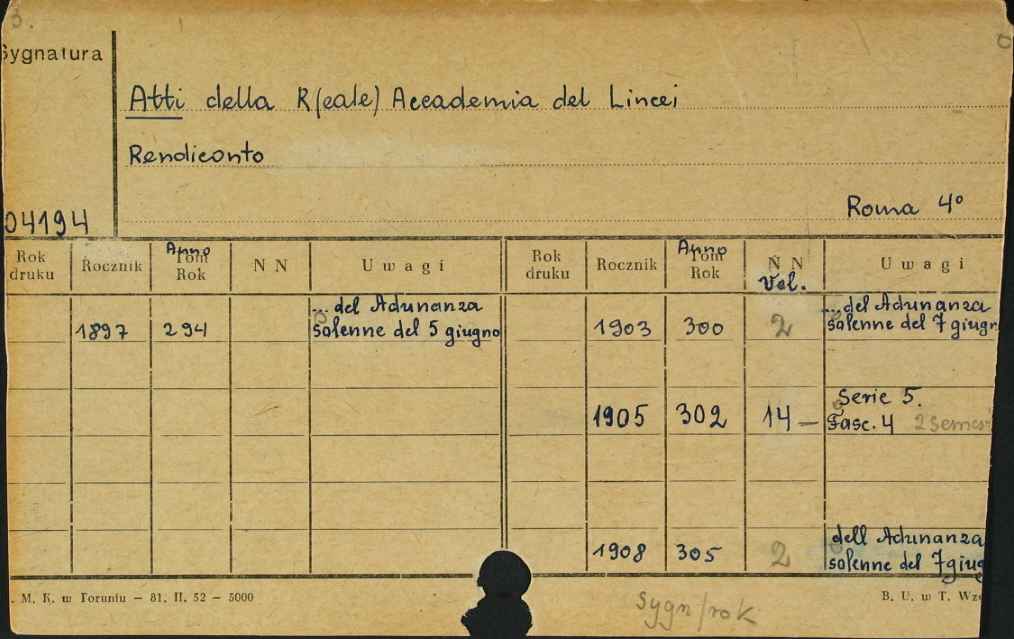 3.
Sygnatura
Atti della R(eale) Accademia del Lincei
Rendiconto
Roma 4°
04194
Rok druku Rocznik Anno Tom Rok N N Uwagi Rok druku Rocznik Anno Tom Rok N N Vol. Uwagi
1897 294 ... del Adunanza solenne del 5 giugno
1903 300 2 ... del Adunanza solenne del 7 giugn
1905 302 14 — Serie 5. Fasc. 4 2 semes
1908 305 2 dell Adunanza solenne del 7 giug
. M. K. w Toruniu — 81. II. 52 — 5000
Sygn/rok
B. U. w T. Wz